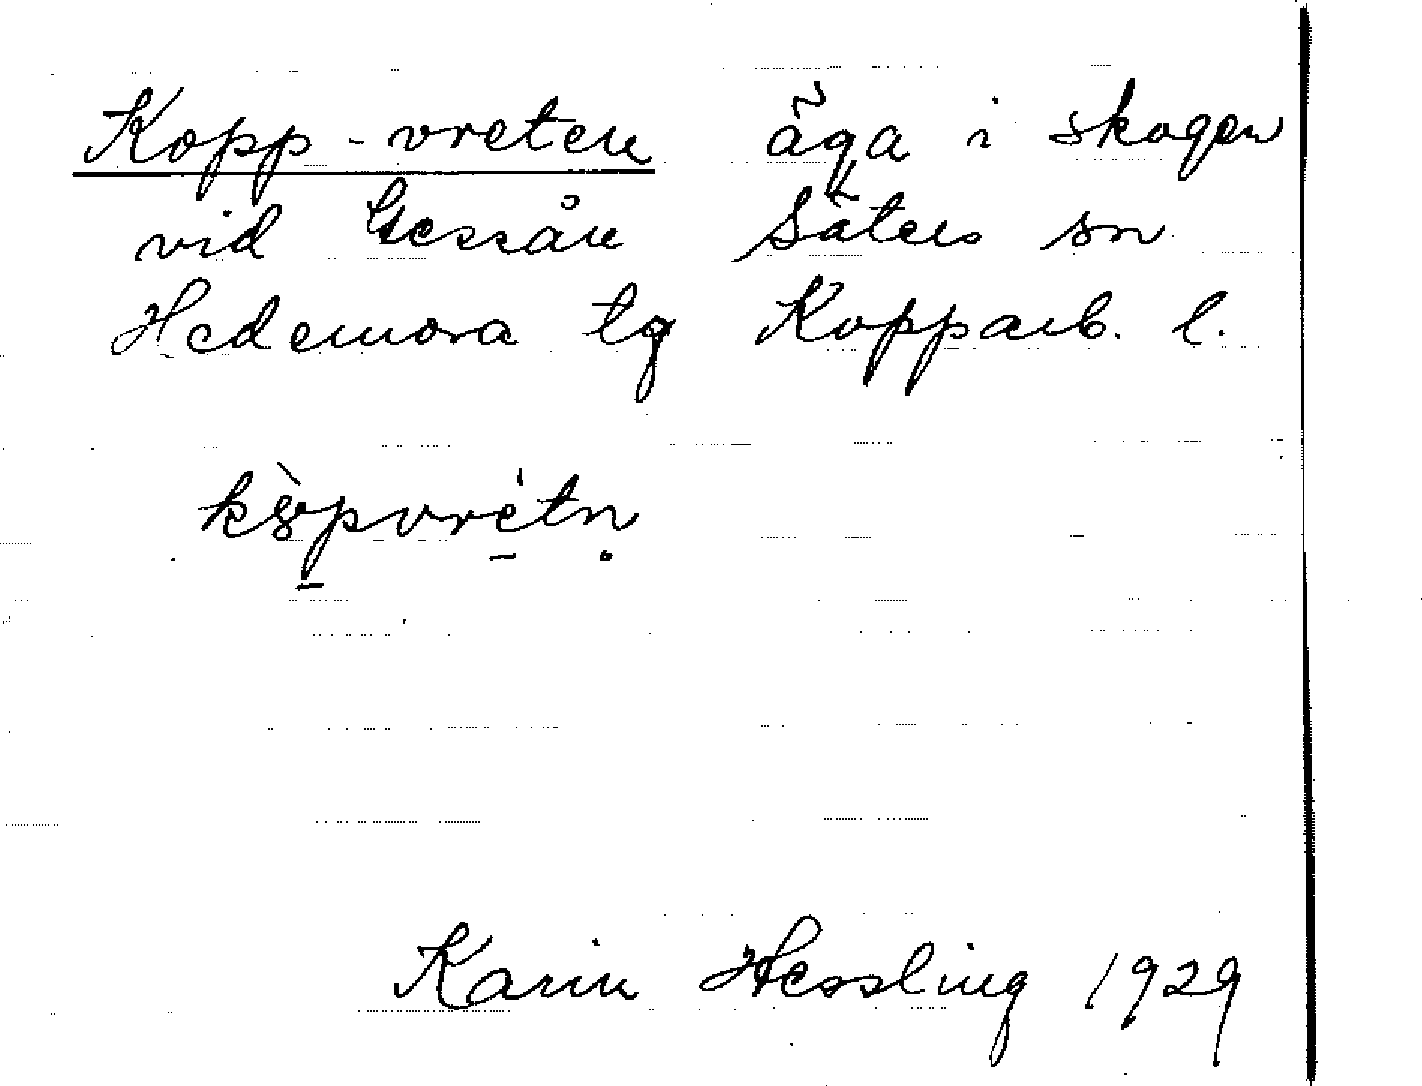 Kopp-vreten äga i skogen
vid Gessån Säters sn
Hedemora tg Kopparb. l.
Karin Hessling 1929